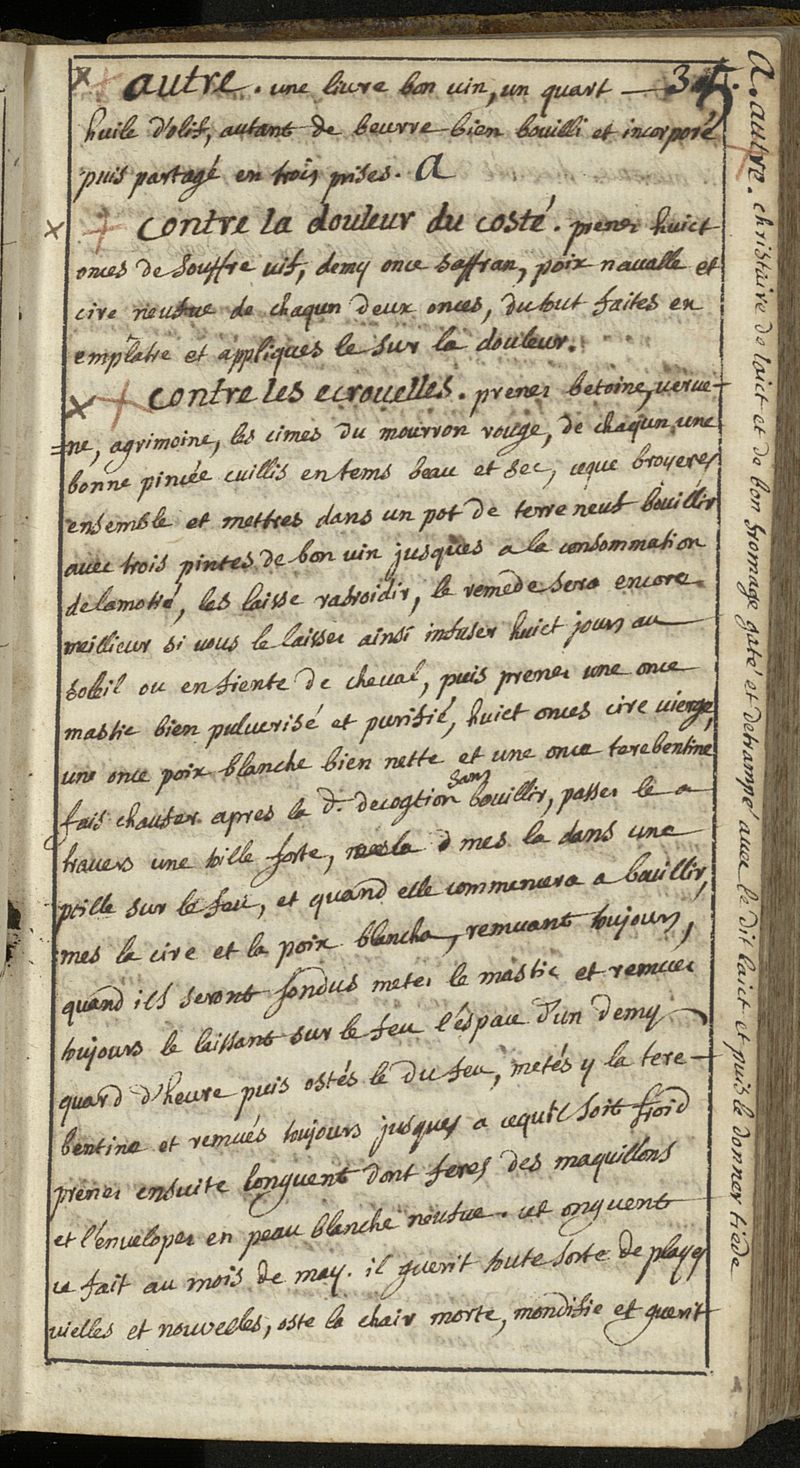 autre. une livre bon vin, un quart — 315.
huile d'olif, autant de beurre bien bouilli et incorporé
puis partagé en trois prises. A
contre la douleur du costé. prenes huict
onces de souffre vif, demy once saffran, poix navalle et
cire neufve de chaqun deux onces, du tout faites en
emplatre et appliques le sur la douleur.
contre les ecrouelles. prenes betoine, verve-
=ne, agrimoine, les cimes du mourron rouge, de chaqun une
bonne pincée cuillis en tems beau et sec, ceque broyeres
ensemble et mettres dans un pot de terre neuf bouillir
avec trois pintes de bon vin jusques a la consommation
delamotié, les laisse rafroidir, le remede sera encore
meillieur si vous le laisses ainsi infuser huict jours au
soleil ou en fiente de cheval, puis prenes une once
mastic bien pulverisé et purifié, huict onces cire vierge,
une once poix blanche bien nette et une once terebentine
fais chaufer apres la d. decogtion sans bouillir, passes le a
travers une toille forte, d mes la dans une
poille sur le feu, et quand elle commencera a bouillir,
mes la cire et la poix blanche, remuant toujours,
quand ils seront fondus metes le mastic et remues
toujours le laissant sur le feu l'éspace d'un demy
quard d'heure puis ostés le du feu, metés y la tere-
bentine et remués toujours jusques a cequil soit froid
prenes ensuite longuent dont feres des maquillons
et l'envelopes en peau blanche neufve. cet onguent
ce fait au mois de may. il guerit toute sorte de playes
vielles et nouvelles, oste la chair morte, mondifie et guerit
A. autre. christaire de laict et de bon fromage gaté et detrampé avec le dit laict et puis le donner tiede